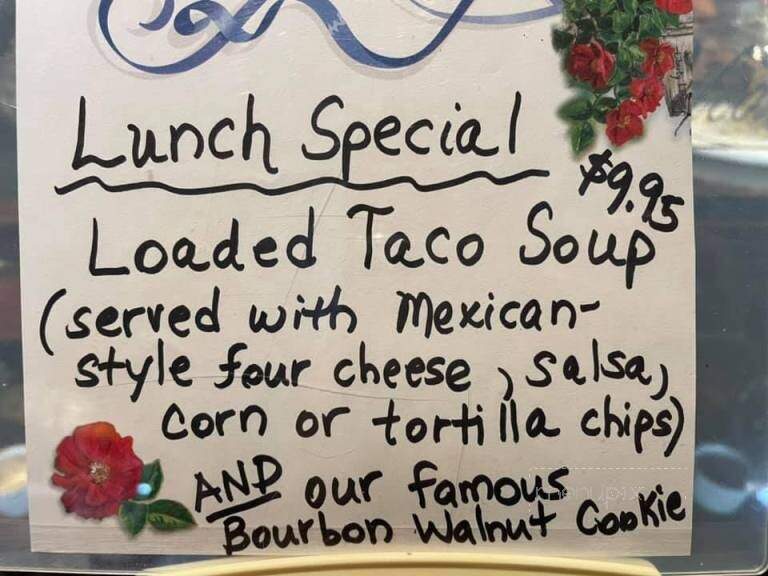 Lunch Special
$9.95
Loaded Taco Soup
(served with Mexican-
style four cheese, salsa,
corn or tortilla chips)
AND our famous
Bourbon Walnut Cookie
menupix